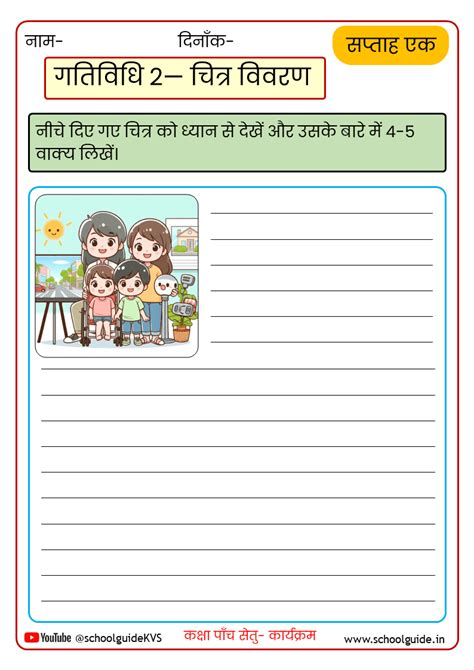 नाम- दिनाँक- सप्ताह एक
गतिविधि 2– चित्र विवरण
नीचे दिए गए चित्र को ध्यान से देखें और उसके बारे में 4-5
वाक्य लिखें।
YouTube @schoolguideKVS कक्षा पाँच सेतु- कार्यक्रम www.schoolguide.in